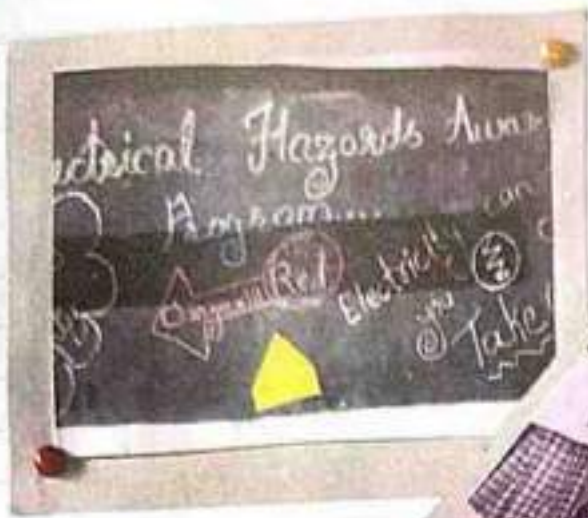 ectrical Hazards Awa
Program...
Organised Electricity can
you
Take